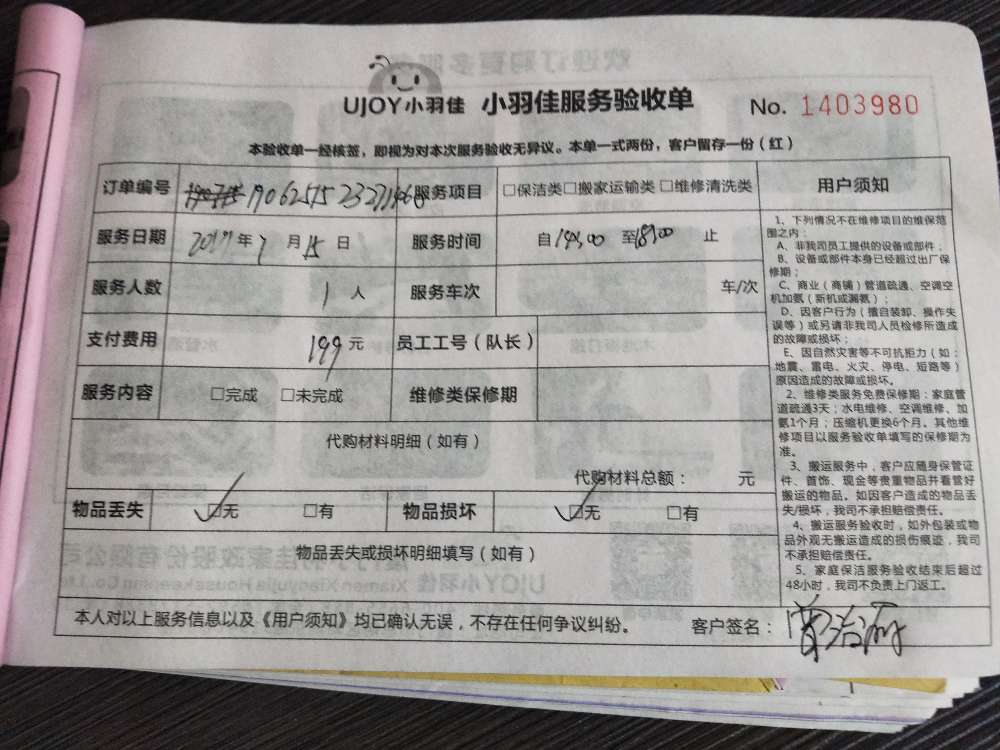 UJOY小羽佳 小羽佳服务验收单 No. 1403980
本验收单一经核签，即视为对本次服务验收无异议。本单一式两份，客户留存一份（红）
订单编号 服务项目 □保洁类□搬家运输类□维修清洗类
服务日期 2019年7月15日 服务时间 自14:00 至18:00 止
服务人数 1人 服务车次 车/次
支付费用 199元 员工工号（队长）
服务内容 □完成 □未完成 维修类保修期
代购材料明细（如有）
代购材料总额： 元
物品丢失 ☑无 □有 物品损坏 ☑无 □有
物品丢失或损坏明细填写（如有）
本人对以上服务信息以及《用户须知》均已确认无误，不存在任何争议纠纷。 客户签名：
用户须知
1、下列情况不在维修项目的维保范
围之内：
A、非我司员工提供的设备或部件；
B、设备或部件本身已经超过出厂保
修期；
C、商业（商铺）管道疏通、空调空
机加氨（新机或漏氨）；
D、因客户行为（擅自装卸、操作失
误等）或另请非我司人员检修所造成
的故障或损坏；
E、因自然灾害等不可抗拒力（如：
地震、雷电、火灾、停电、短路等）
原因造成的故障或损坏。
2、维修类服务免费保修期：家庭管
道疏通3天；水电维修、空调维修、加
氨1个月；压缩机更换6个月。其他维
修项目以服务验收单填写的保修期为
准。
3、搬运服务中，客户应随身保管证
件、首饰、现金等贵重物品并看管好
搬运的物品。如因客户造成的物品丢
失/损坏，我司不承担赔偿责任。
4、搬运服务验收时，如外包装或物
品外观无搬运造成的损伤痕迹，我司
不承担赔偿责任。
5、家庭保洁服务验收结束后超过
48小时，我司不负责上门返工。